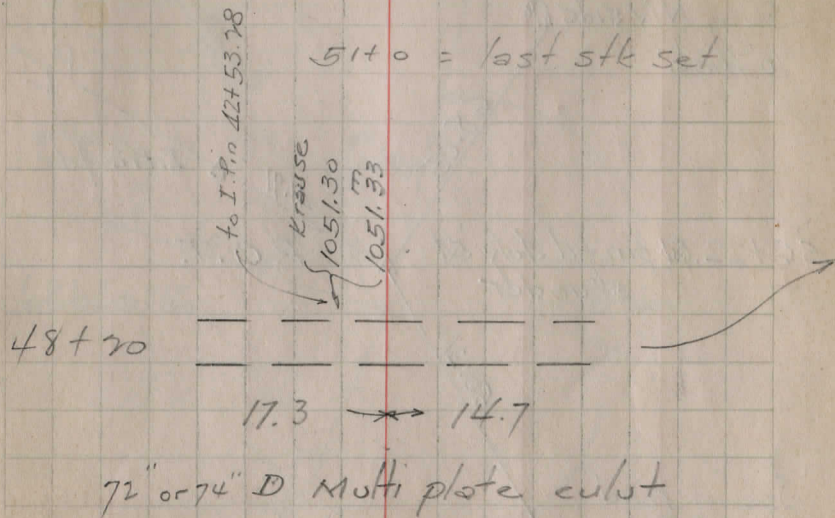 51+0 = last stk set
to I.Pin 42+53.28
Krause
1051.30
m
1051.33
48+20
17.3 14.7
72" or 74" D Multi plate culut